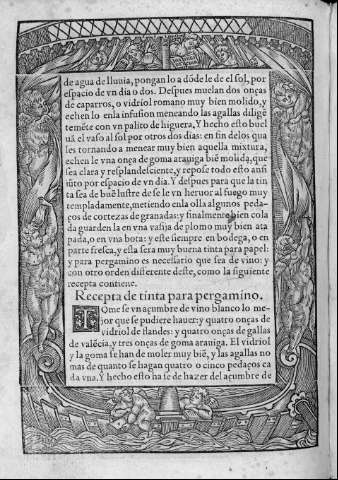 de agua de lluuia, pongan lo a dõde le de el sol, por
espacio de vn dia o dos. Despues muelan dos onças
de caparros, o vidriol romano muy bien molido, y
echen lo enla infusion meneando las agallas diligẽ
temẽte con vn palito de higuera, Y hecho esto buel
uã el vaso al sol por otros dos dias: en fin delos qua
les tornando a menear muy bien aquella mixtura,
echen le vna onça de goma arauiga biẽ molida, que
sea clara y resplandesciente, y repose todo esto ansi
jũto por espacio de vn dia. Y despues para que la tin
ta sea de buẽ lustre de se le vn heruor al fuego muy
templadamente, metiendo enla olla algunos peda-
ços de cortezas de granadas: y finalmente bien cola
da guarden la en vna vasija de plomo muy bien ata
pada, o en vna bota: y este siempre en bodega, o en
parte fresca, y esta sera muy buena tinta para papel:
y para pergamino es necessario que sea de vino: y
con otro orden differente deste, como la siguiente
recepta contiene.
Recepta de tinta para pergamino.
TOme se vn açumbre de vino blanco lo me-
jor que se pudiere hauer: y quatro onças de
vidriol de flandes: y quatro onças de gallas
de valẽcia, y tres onças de goma arauiga. El vidriol
y la goma se han de moler muy biẽ, y las agallas no
mas de quanto se hagan quatro o cinco pedaços ca
da vna. Y hecho esto ha se de hazer del açumbre de